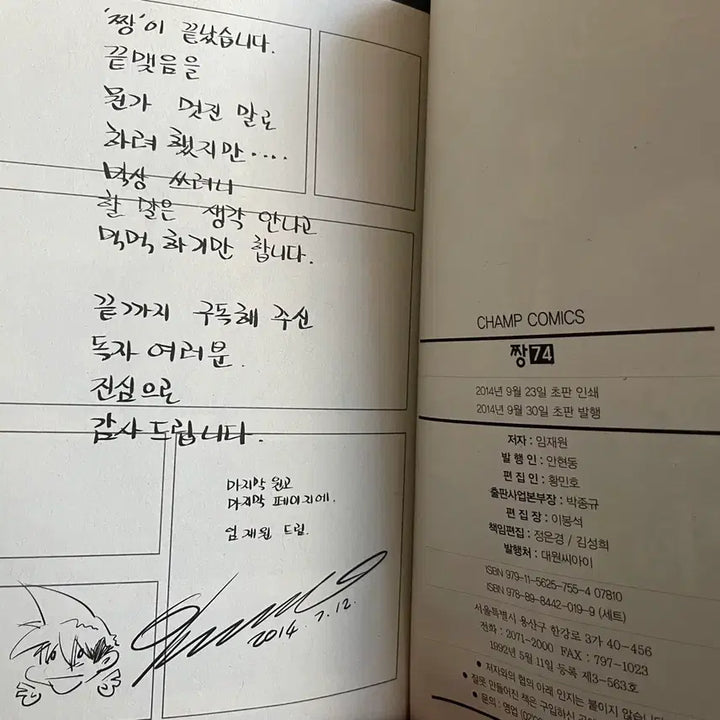 '짱'이 끝났습니다.
끝맺음을
뭔가 멋진 말로
하려 했지만....
막상 쓰려니
할 말은 생각 안나고
먹먹하기만 합니다.
끝까지 구독해 주신
독자 여러분.
진심으로
감사드립니다.
마지막 원고
마지막 페이지에.
임재원 드림.
2014. 7. 12.
CHAMP COMICS
짱 74
2014년 9월 23일 초판 인쇄
2014년 9월 30일 초판 발행
저자 : 임재원
발행인 : 안현동
편집인 : 황민호
출판사업본부장 : 박종규
편집장 : 이봉석
책임편집 : 정은경 / 김성희
발행처 : 대원씨아이
ISBN 979-11-5625-755-4 07810
ISBN 978-89-8442-019-9 (세트)
서울특별시 용산구 한강로 3가 40-456
전화 : 2071-2000 FAX : 797-1023
1992년 5월 11일 등록 제3-563호
● 저자와의 협의 아래 인지는 붙이지 않습니다
● 잘못 만들어진 책은 구입하신
● 문의 : 영업 (02)